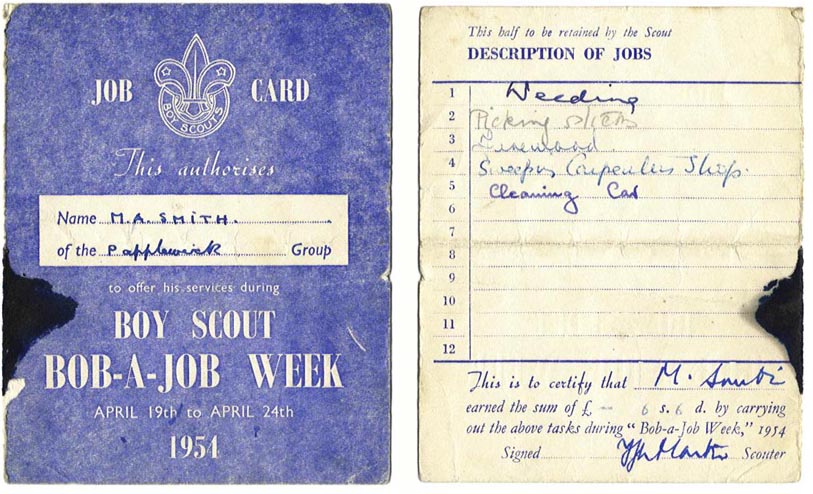 JOB CARD
BOY SCOUTS
This authorises
Name M.A. SMITH.
of the Papplewick Group
to offer his services during
BOY SCOUT
BOB-A-JOB WEEK
APRIL 19th to APRIL 24th
1954
This half to be retained by the Scout
DESCRIPTION OF JOBS
1 Weeding
2 Picking
3 Firewood.
4 Sweeping Carpenters Shop.
5 Cleaning Car
6
7
8
9
10
11
12
This is to certify that M. Smith
earned the sum of £ — 6 s. 6 d. by carrying
out the above tasks during "Bob-a-Job Week," 1954
Signed Scouter